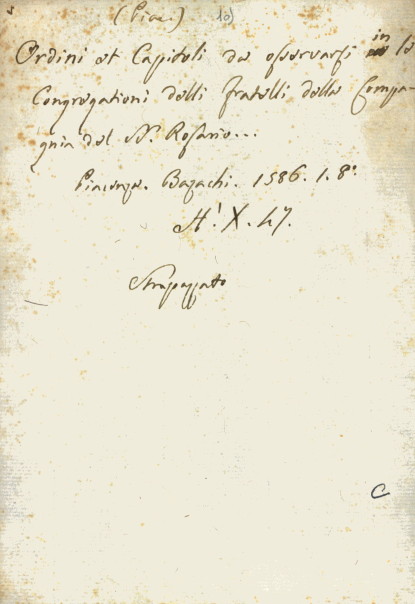 (Piac.) 10)
Ordini et Capitoli da osservarsi in le
Congregationi delli fratelli della Compa-
gnia del SS. Rosario...
Piacenza. Bazachi. 1586. 1. 8º.
H. X. 47.
Strapazzato
C